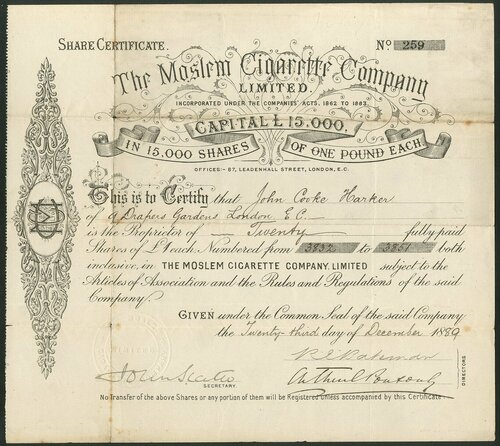 SHARE CERTIFICATE. No 259
The Moslem Cigarette Company
LIMITED.
INCORPORATED UNDER THE COMPANIES' ACTS, 1862 TO 1883.
CAPITAL £ 15.000.
IN 15.000 SHARES OF ONE POUND EACH.
OFFICES:- 67, LEADENHALL STREET, LONDON, E.C.
This is to Certify that John Cooke Harker
of Drapers Gardens London E.C.
is the Proprietor of Twenty fully paid
Shares of £1 each Numbered from 3832 to 3851 both
inclusive in THE MOSLEM CIGARETTE COMPANY, LIMITED subject to the
Articles of Association and the Rules and Regulations of the said
Company.
GIVEN under the Common Seal of the said Company
the Twenty-third day of December 1889
DIRECTORS
SECRETARY.
No Transfer of the above Shares or any portion of them will be Registered unless accompanied by this Certificate.